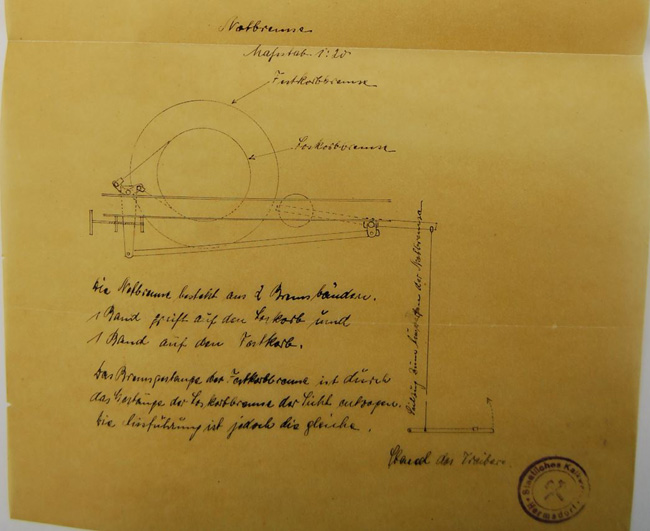 Notbremse
Maßstab 1:20
Festkorbbremse
Loskorbbremse
Die Notbremse besteht aus 2 Bremsbändern.
1 Band greift auf den Loskorb und
1 Band auf den Festkorb.
Das Bremsgestänge der Festkorbbremse ist durch
das Gestänge der Loskorbbremse der Sicht entzogen.
Die Ausführung ist jedoch die gleiche.
Seilzug zum Einlegen der Notbremse
Stand des Treibers
Staatliches